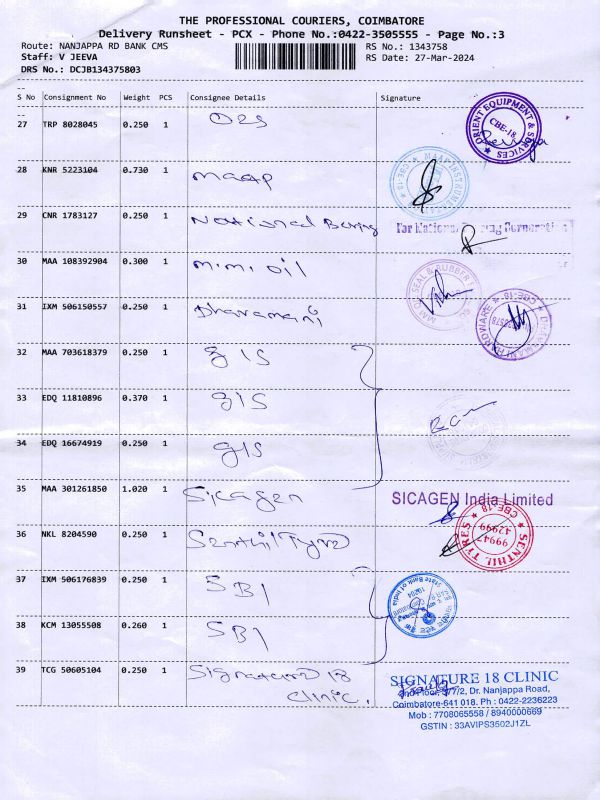 THE PROFESSIONAL COURIERS, COIMBATORE
Delivery Runsheet - PCX - Phone No.:0422-3505555 - Page No.:3
Route: NANJAPPA RD BANK CMS RS No.: 1343758
Staff: V JEEVA RS Date: 27-Mar-2024
DRS No.: DCJB134375803
S No Consignment No Weight PCS Consignee Details Signature
27 TRP 8028045 0.250 1
ORIENT EQUIPMENT & SERVICES
CBE-18
28 KNR 5223104 0.730 1 maap
29 CNR 1783127 0.250 1 National Bering
For National
30 MAA 108392904 0.300 1 m.m oil
SEAL & RUBBER
31 IXM 506150557 0.250 1 Dharamani
HARDWARE
CBE-18
32 MAA 703618379 0.250 1 GIS
33 EDQ 11810896 0.370 1 GIS
34 EDQ 16674919 0.250 1 GIS
35 MAA 301261850 1.020 1 Sicagen SICAGEN India Limited
36 NKL 8204590 0.250 1 Senthil Tyres
SENTHIL TYRES
CBE-18
99947
42999
37 IXM 506176839 0.250 1 SBI
State Bank of India
38 KCM 13055508 0.260 1 SBI
39 TCG 50605104 0.250 1 Signature 18
clinic.
SIGNATURE 18 CLINIC
Dr. Nanjappa Road,
Coimbatore-641 018. Ph : 0422-2236223
Mob : 7708065558 / 8940000669
GSTIN : 33AVIPS3502J1ZL